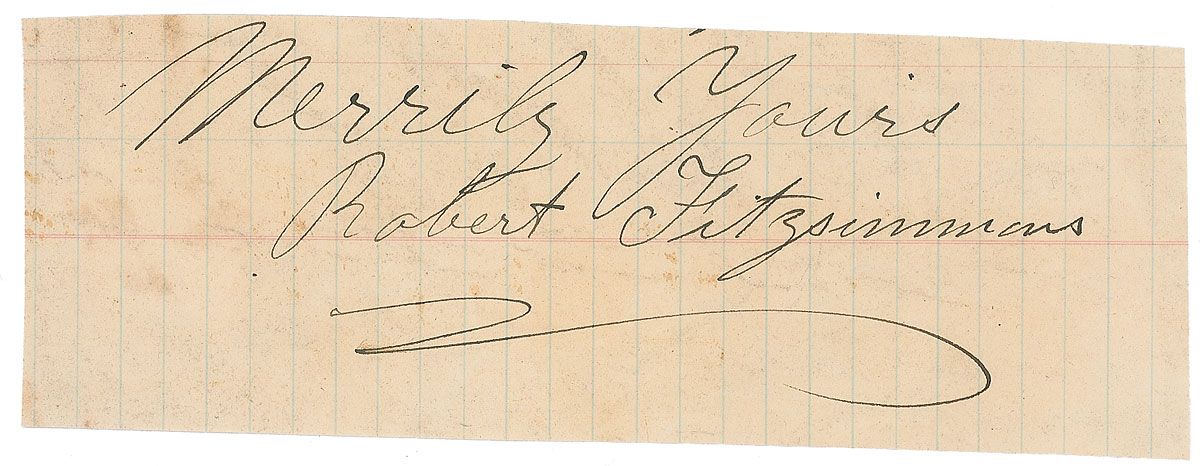 Merrily Yours
Robert Fitzsimmons